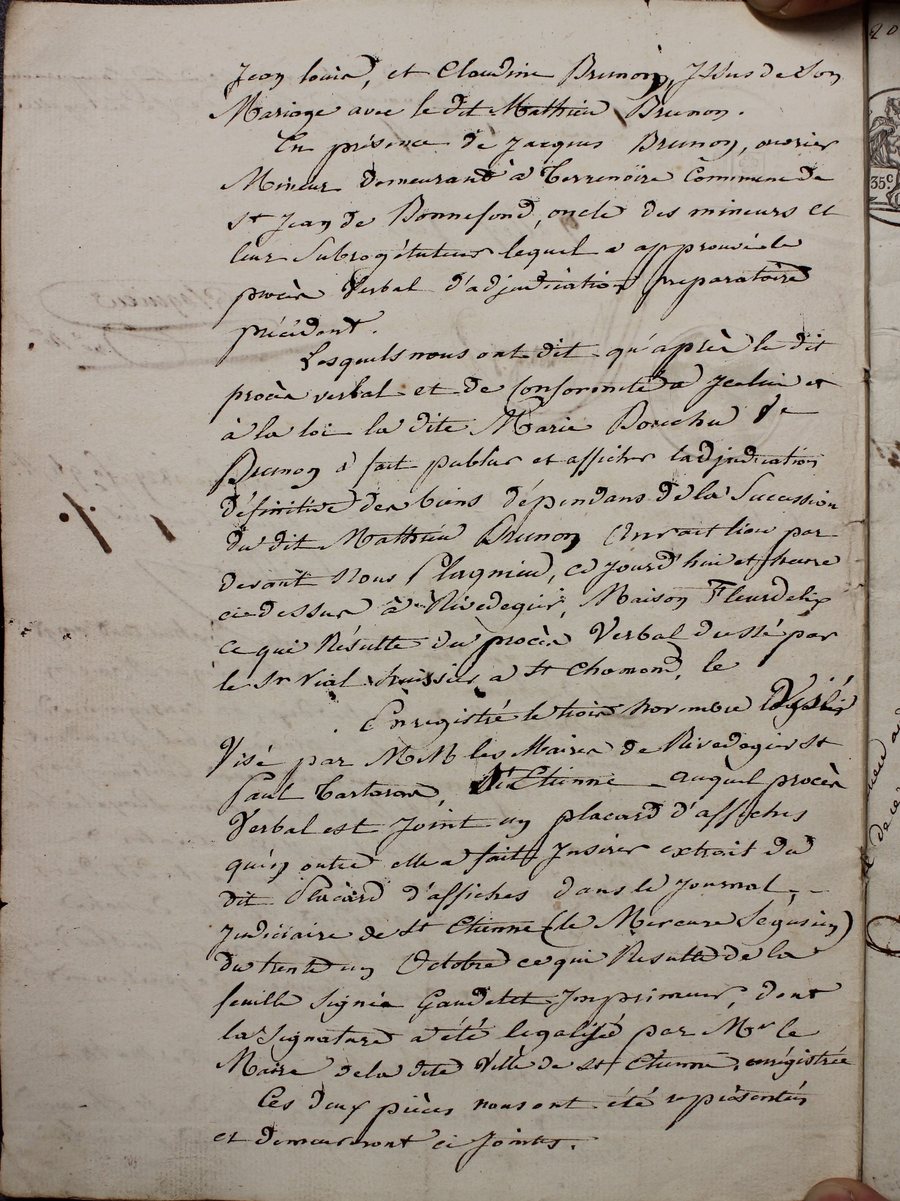 Jean louis, et Claudine Brunon, Issus de Son
Mariage avec le dit Mathieu Brunon.
En présence de Jacques Brunon, ouvrier
Mineur demeurant à Terrenoire Commune de
St Jean de Bonnefond, oncle des mineurs et
leur Subrogétuteur lequel a approuvé le
procès Verbal d'adjudication preparatoire
précédent.
Lesquels nous ont dit qu'après le dit
procès verbal et de Conformité à Icelui et
à la loi la dite Marie Bouchu Ve
Brunon a fait publier et afficher ladjudication
définitive des biens dépendans de la Succession
du dit Mathieu Brunon, aurait lieu par
devant Nous Plagnieu, ce jourd'hui et heure
ci dessus à Rivedegier, Maison Fleurdelix
ce qui Résulte du procès Verbal dressé par
le Sr Vial huissier a St Chamond, le
Enregistré le trois Novembre
Visé par MM les Maires de Rivedegier St
Paul , St Etienne auquel procès
Verbal est Joint un placard d'affiches
qu'en outre elle a fait Insérer extrait du
dit Placard d'affiches dans le Journal
Judiciaire de St Etienne (le Mercure Ségusien)
du trente un Octobre ce qui Résulte de la
feuille Signée Gaudelet Imprimeur, dont
la Signature a été legalisé par Mr le
Maire de la dite Ville de St Etienne, enrégistrée
Ces deux pièces nous ont été représentés
et demeureront ci Jointes.
35c
20